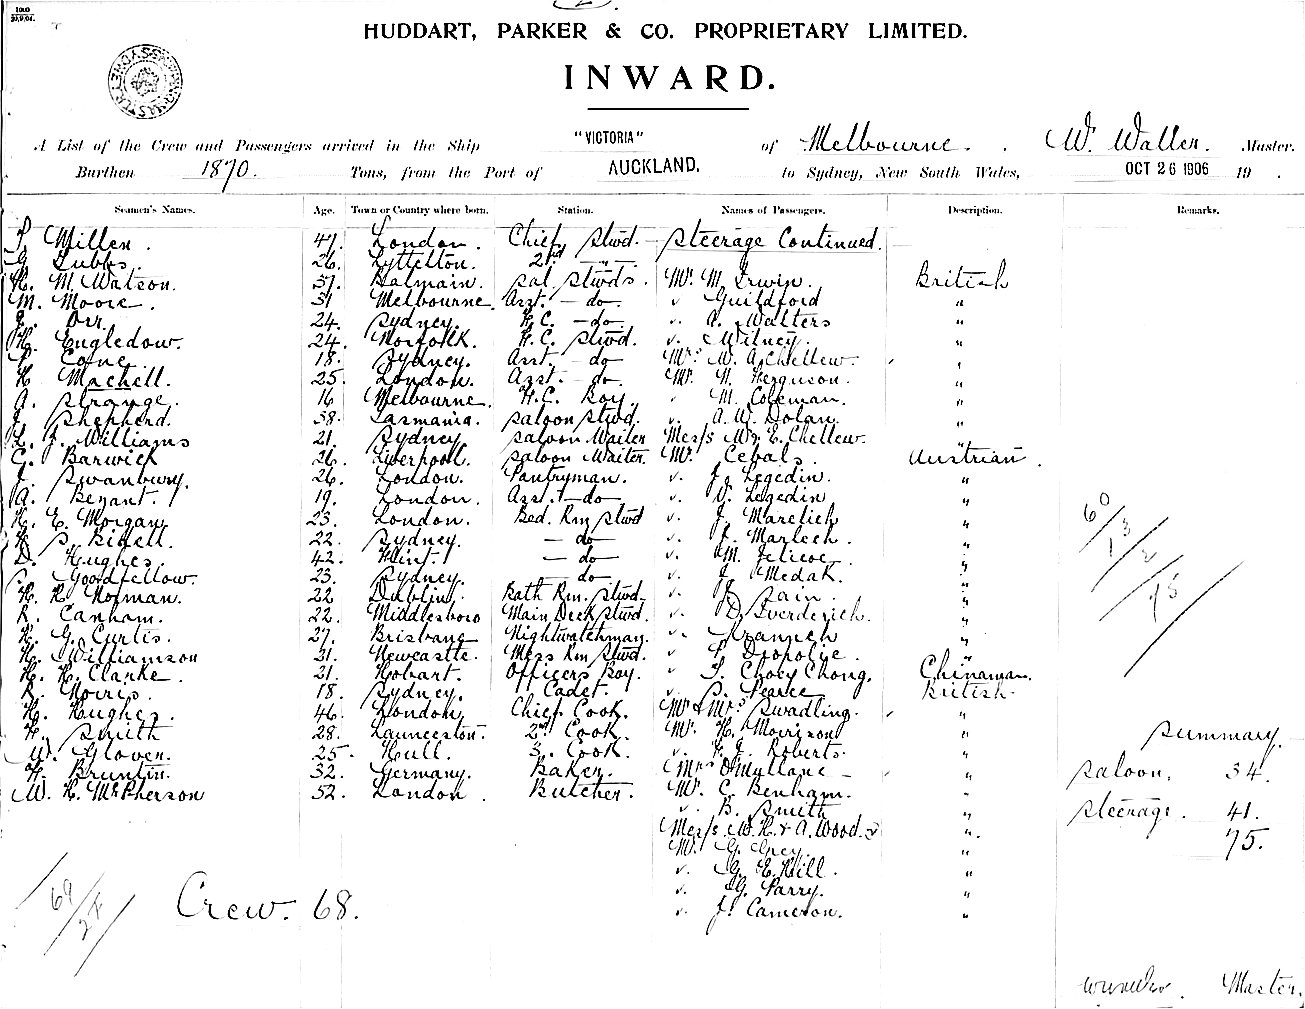 HUDDART, PARKER & CO. PROPRIETARY LIMITED.
INWARD.
A List of the Crew and Passengers arrived in the Ship "VICTORIA" of Melbourne. W. Waller. Master.
Burthen 1870. Tons, from the Port of AUCKLAND. to Sydney, New South Wales, OCT 26 1906 19 .
Seamen's Names. Age. Town or Country where born. Station. Names of Passengers. Description. Remarks.
Miller. 47. London. Chief Stwd. Steerage Continued.
Tubbs. 26. Lyttelton. 2nd "
H. M. Watson. 37. Balmain. Sal. Stwds. Mr. M. Irwin. British
M. Moore. 31 Melbourne. Asst. - do. " Guildford "
Orr. 24. Sydney. F.C. - do - " A. Walters "
H. Engledow. 24. Norfolk. F.C. Stwd. " Witney. "
Coyne. 18. Sydney. Asst. - do Mrs. W. A. Chellew. "
H. Machell. 25. London. Asst. - do Mr. N. Ferguson. "
A. Strange. 16 Melbourne. F.C. Boy. " M. Coleman. "
J. Shepherd. 38. Tasmania. Saloon Stwd. " A. W. Dolan. "
L. J. Williams 21. Sydney. Saloon Waiter Mess/s W & E. Chellew. "
C. Barwick 26. Liverpool. Saloon Waiter. Mr. Cebals. Austrian.
J. Swanbury. 26. London. Pantryman. " J. Legedin. "
A. Bezant. 19. London. Asst. - do - " V. Legedin "
H. E. Morgan 23. London. Bed. Rm Stwd " J. Marelich "
22. Sydney. - do - " "
D. Hughes 42. Flint. - do - " M. Jelicoe. "
S. Goodfellow. 23. Sydney. - do - " J. Medak. "
H. H. Norman. 22 Dublin. Bath Rm. Stwd. " J. Sain. "
R. Canham. 22. Middlesboro Main Deck Stwd. " "
H. G. Curtis. 27. Brisbane Nightwatchman. " "
H. Williamson 21. Newcastle. Mess Rm Stwd. " "
H. H. Clarke. 21. Hobart. Officers Boy. " T. Choey Chong. Chinaman.
R. Norris. 18. Sydney. Cadet. " S. Pearce British.
H. Hughes. 46. London Chief Cook. Mr & Mrs Swadling. "
H. Smith 28. Launceston. 2nd Cook. Mr. H. Morrison "
W. Glover. 25. Hull. 3. Cook. " F. J. Roberts. "
H. Bruntin. 32. Germany. Baker. Mrs O'Mullane - "
W. H. McPherson 52. London. Butcher. Mr. C. Benham. "
" B. Smith "
Mess/s W. H. & A. Wood. "
Mr. G. Grey "
" G. E. Hill. "
" G. Parry. "
" J. Cameron. "
60
13
2
75
Summary.
Saloon. 34.
Steerage. 41.
75.
Crew. 68.
Master.